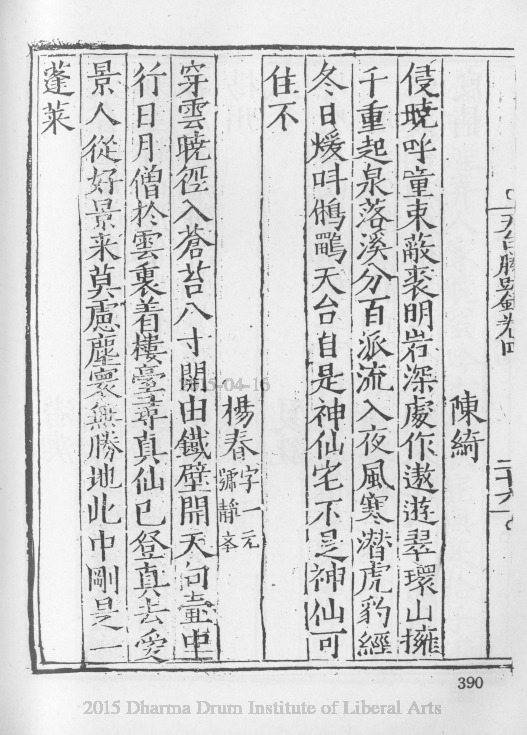 天台勝跡錄卷四
二十六
陳綺
侵曉呼童束敝裘明岩深處作遨遊翠環山擁
千重起泉落溪分百派流入夜風寒潛虎豹經
冬日煖叫鵂鶹天台自是神仙宅不是神仙可
住不
楊春字一元號靜齋
穿雲曉徑入蒼苔八寸關由鐵壁開天向壷中
行日月僧於雲裏着樓臺尋真仙已登真去愛
景人從好景来莫慮塵寰無勝地此中剛是一
蓬莱
2015-04-16
390
2015 Dharma Drum Institute of Liberal Arts